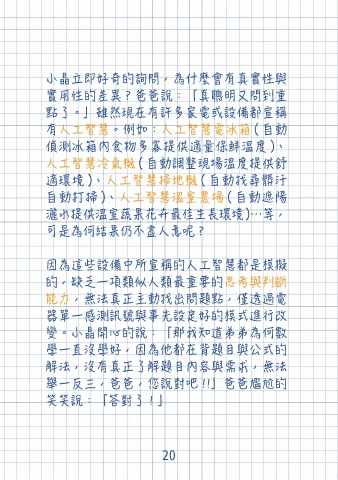 小晶立即好奇的詢問，為什麼會有真實性與
實用性的差異？爸爸說：「真聰明又問到重
點了。」雖然現在有許多家電或設備都宣稱
有人工智慧。例如：人工智慧電冰箱(自動
偵測冰箱內食物多寡提供適量保鮮溫度)、
人工智慧冷氣機(自動調整現場溫度提供舒
適環境)、人工智慧掃地機(自動找尋髒汙
自動打掃)、人工智慧溫室農場(自動遮陽
灑水提供溫室蔬果花卉最佳生長環境)…等，
可是為何結果仍不盡人意呢？
因為這些設備中所宣稱的人工智慧都是模擬
的，缺乏一項類似人類最重要的思考與判斷
能力，無法真正主動找出問題點，僅透過電
器單一感測訊號與事先設定好的模式進行改
變。小晶開心的說：「那我知道弟弟為何數
學一直沒學好，因為他都在背題目與公式的
解法，沒有真正了解題目內容與需求，無法
舉一反三，爸爸，您說對吧!!」爸爸尷尬的
笑笑說：「答對了！」
20